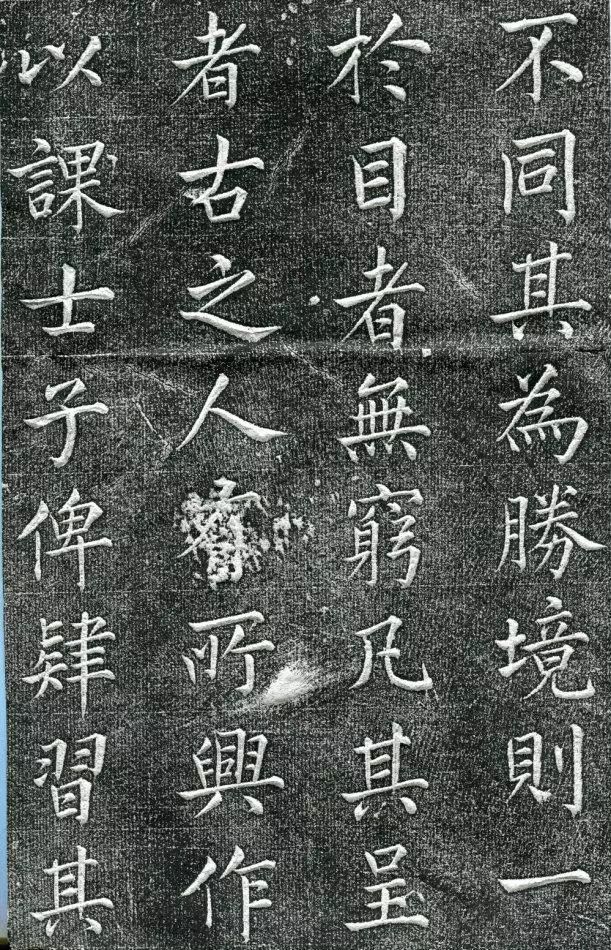 不同其為勝境則一
於目者無窮凡其呈
者古之人有所興作
以課士子俾肄習其